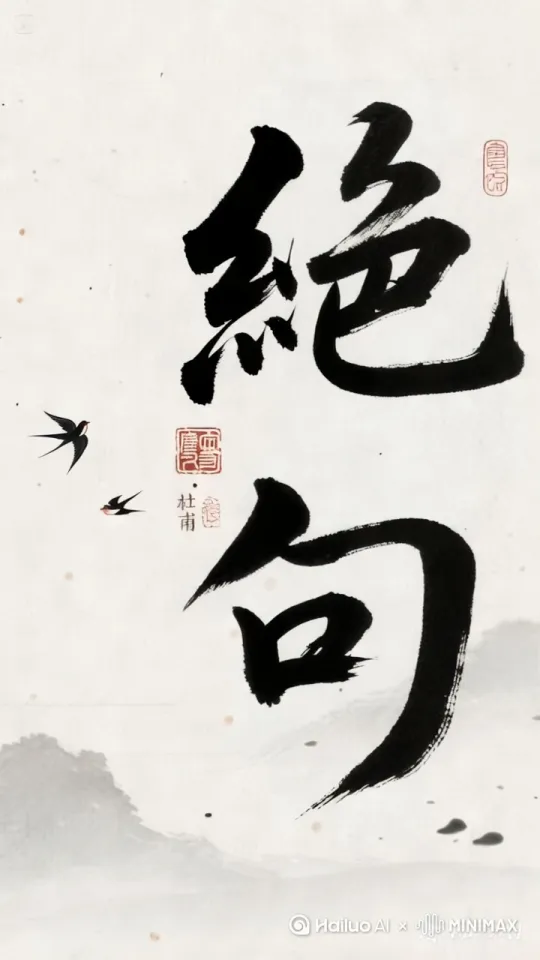 絕句
杜甫
Hailuo AI × MINIMAX